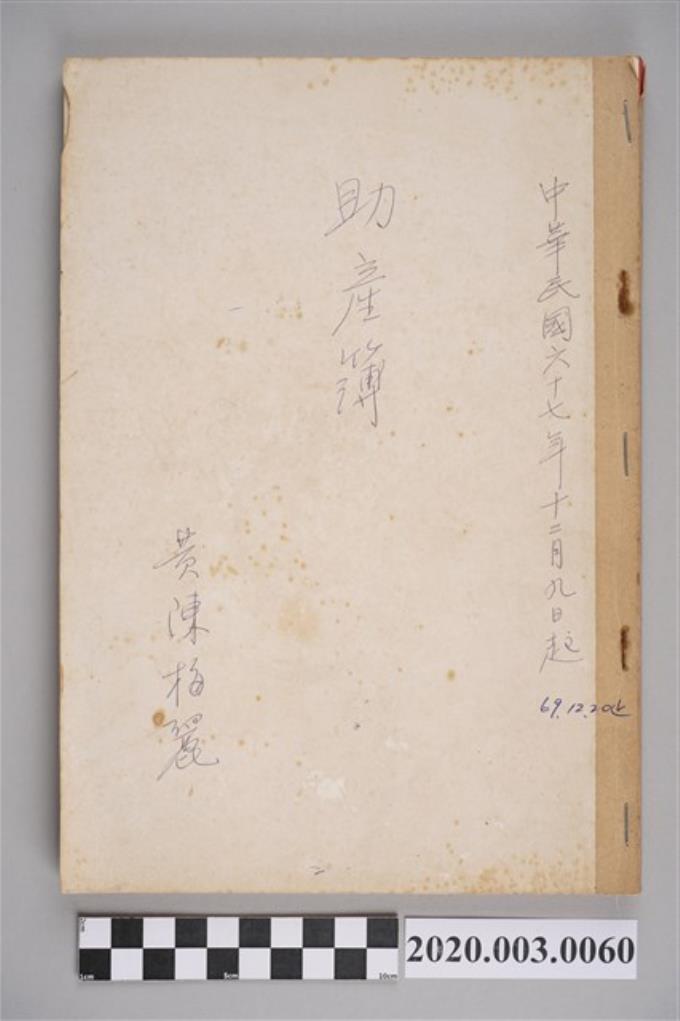 中華民國六十七年十二月九日起
69.12.20止
助產簿
黃陳梅麗
2020.003.0060
1cm
5cm
10cm